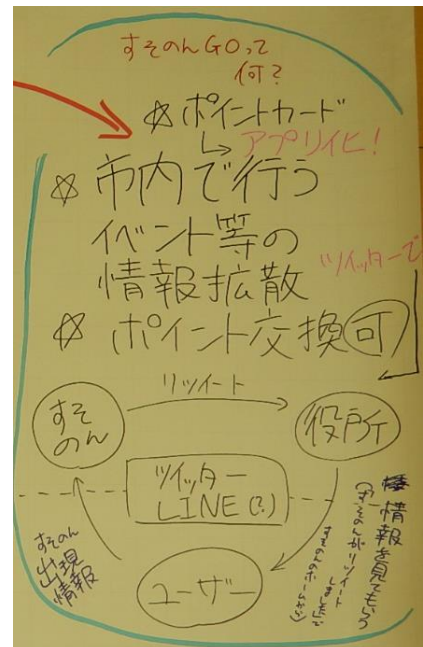 すそのんGOって
何?
☆ポイントカード
↳アプリ化!
☆市内で行う
イベント等の
情報拡散
ツイッターで
☆ポイント交換可
リツイート
すそ
のん
役所
ツイッター
LINE(?)
ユーザー
すそのん
出現
情報
情報を見てもらう
(すそのんがリツイート
しました)で